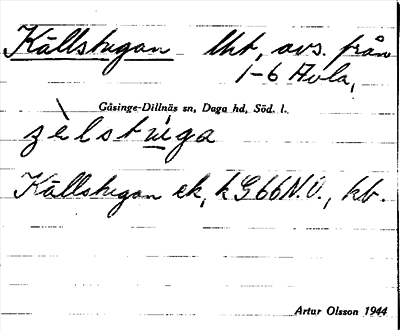 Källstugan Uht, avs. från
1-6 Avla,
Gåsinge-Dillnäs sn, Daga hd, Söd. l.
zèlstú̱ga
Källstugan ek, k G 66 N.O., kb.
Artur Olsson 1944